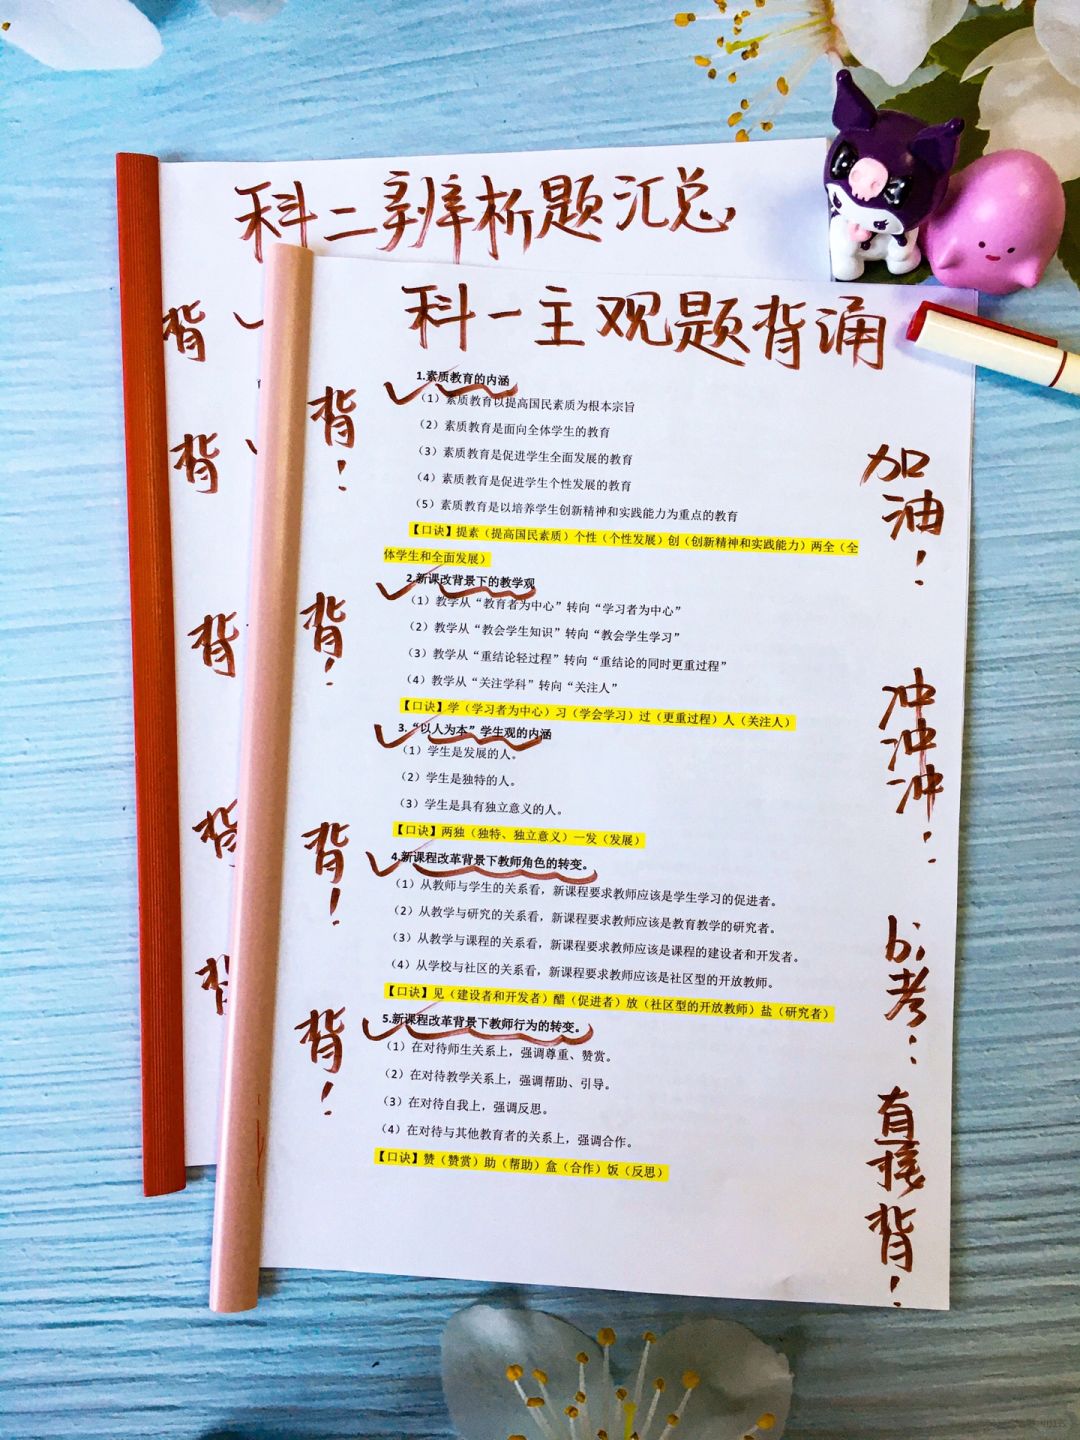 科二辨析题汇总
背
背
背
背
背
科一主观题背诵
背！
背！
背！
背！
1.素质教育的内涵
（1）素质教育以提高国民素质为根本宗旨
（2）素质教育是面向全体学生的教育
（3）素质教育是促进学生全面发展的教育
（4）素质教育是促进学生个性发展的教育
（5）素质教育是以培养学生创新精神和实践能力为重点的教育
【口诀】提素（提高国民素质）个性（个性发展）创（创新精神和实践能力）两全（全
体学生和全面发展）
2.新课改背景下的教学观
（1）教学从“教育者为中心”转向“学习者为中心”
（2）教学从“教会学生知识”转向“教会学生学习”
（3）教学从“重结论轻过程”转向“重结论的同时更重过程”
（4）教学从“关注学科”转向“关注人”
【口诀】学（学习者为中心）习（学会学习）过（更重过程）人（关注人）
3.“以人为本”学生观的内涵
（1）学生是发展的人。
（2）学生是独特的人。
（3）学生是具有独立意义的人。
【口诀】两独（独特、独立意义）一发（发展）
4.新课程改革背景下教师角色的转变。
（1）从教师与学生的关系看，新课程要求教师应该是学生学习的促进者。
（2）从教学与研究的关系看，新课程要求教师应该是教育教学的研究者。
（3）从教学与课程的关系看，新课程要求教师应该是课程的建设者和开发者。
（4）从学校与社区的关系看，新课程要求教师应该是社区型的开放教师。
【口诀】见（建设者和开发者）醋（促进者）放（社区型的开放教师）盐（研究者）
5.新课程改革背景下教师行为的转变。
（1）在对待师生关系上，强调尊重、赞赏。
（2）在对待教学关系上，强调帮助、引导。
（3）在对待自我上，强调反思。
（4）在对待与其他教育者的关系上，强调合作。
【口诀】赞（赞赏）助（帮助）盒（合作）饭（反思）
加
油！
冲
冲
冲！
bi
考！
直
接
背！